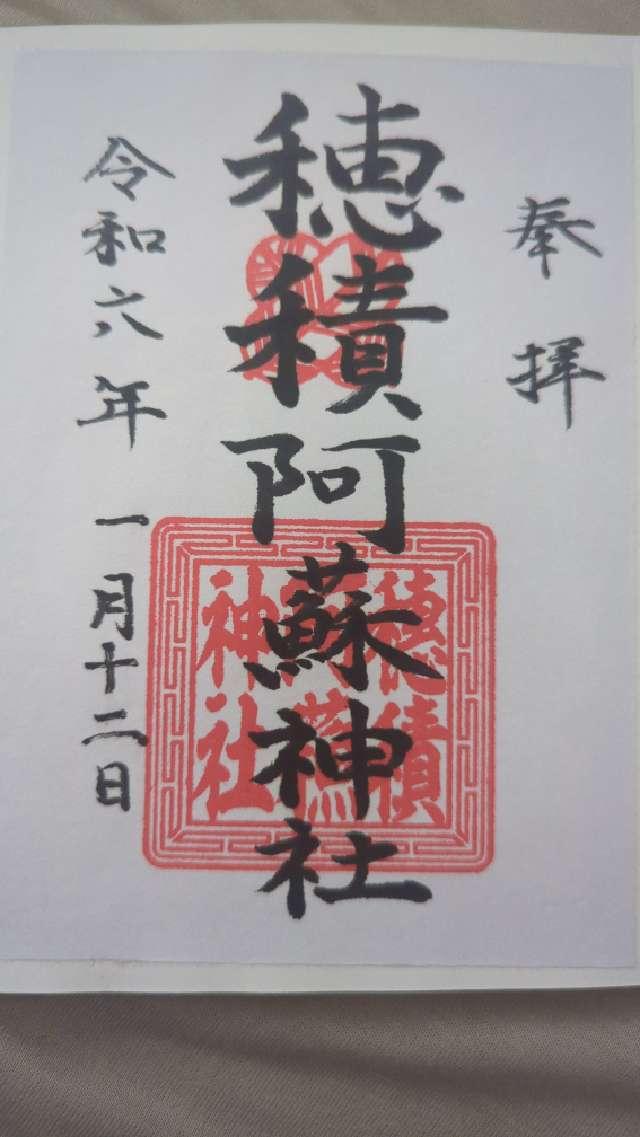 奉拝
穂積阿蘇神社
穂積
阿蘇
神社
令和六年 一月十二日